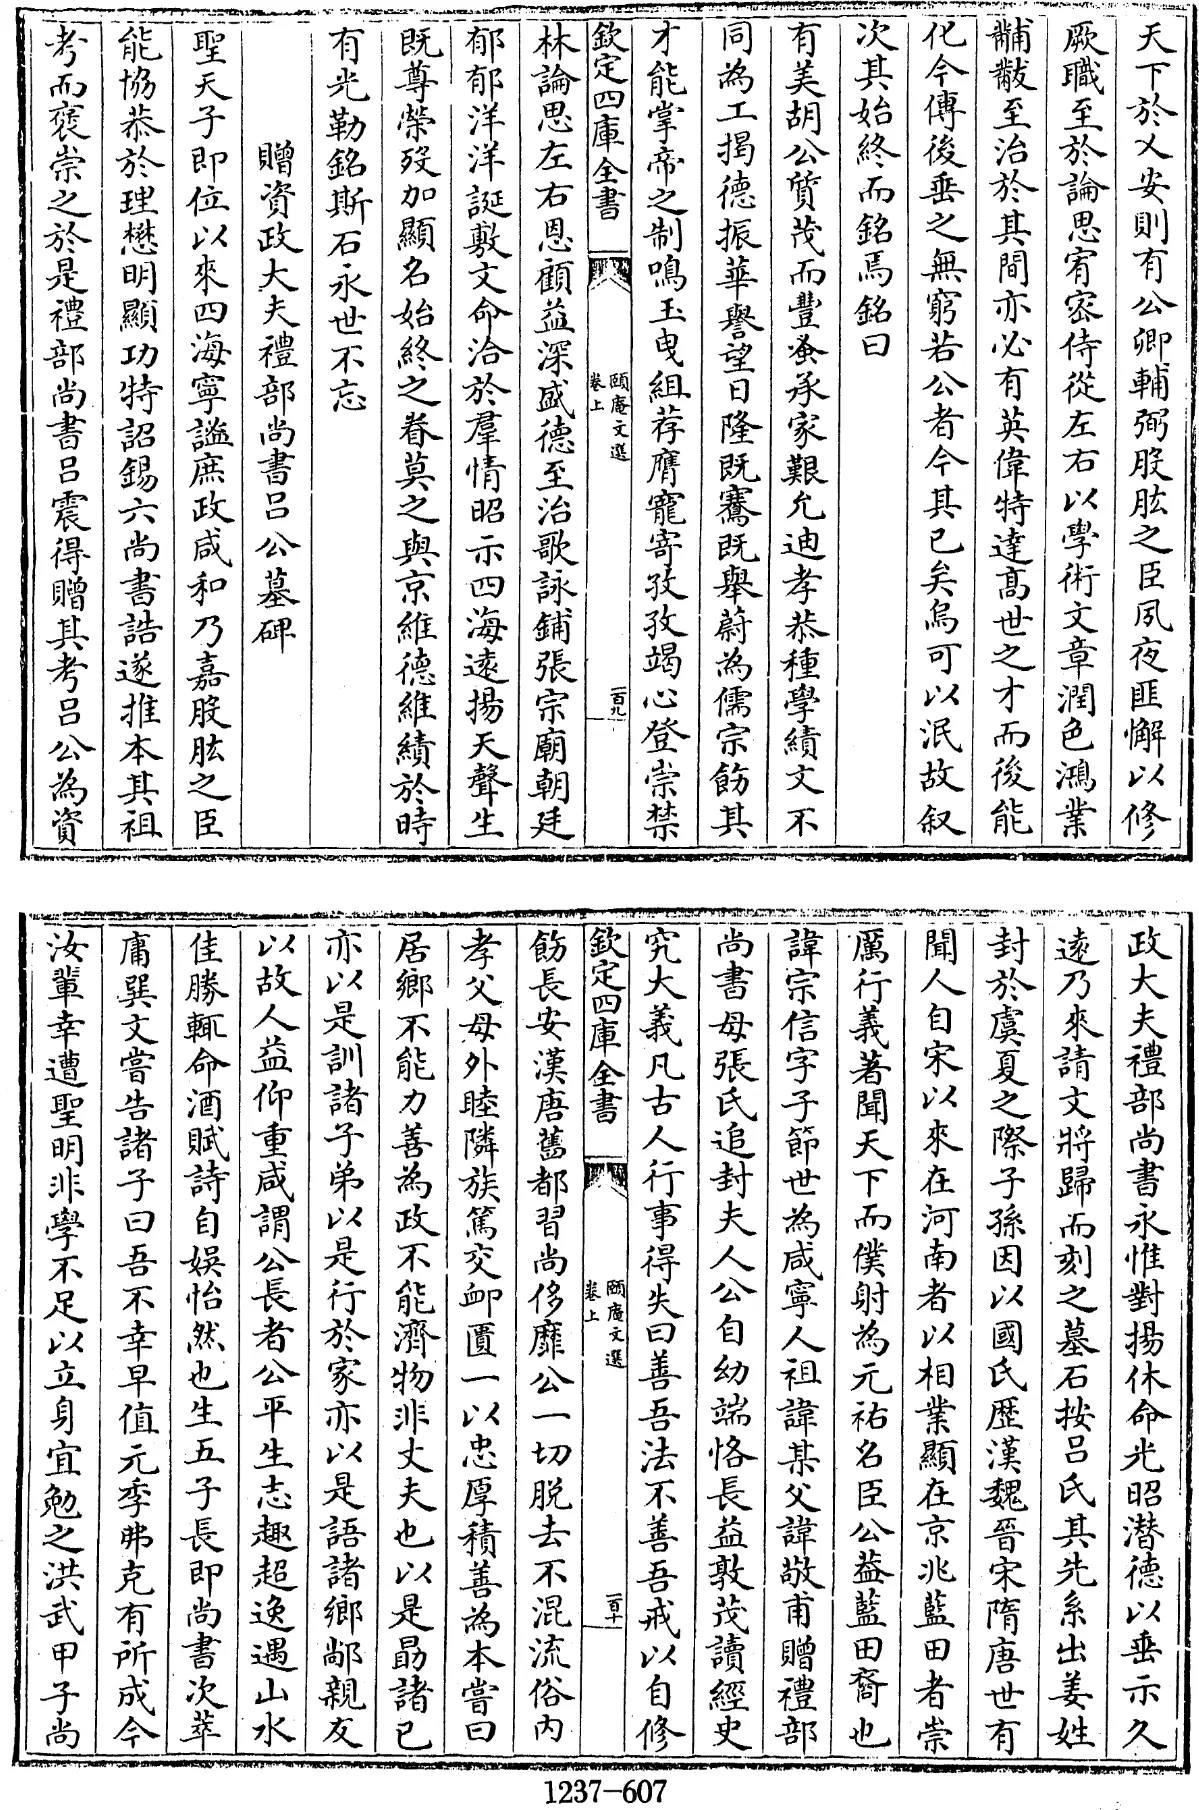 天下於乂安則有公卿輔弼股肱之臣夙夜匪懈以修
厥職至於論思宥密侍從左右以學術文章潤色鴻業
黼黻至治於其間亦必有英偉特達髙世之才而後能
化今傳後垂之無窮若公者今其已矣烏可以泯故叙
次其始終而銘焉銘曰
有美胡公質茂而豐蚤承家艱允迪孝恭種學績文不
同為工揭德振華譽望日隆既騫既舉蔚為儒宗飭其
才能掌帝之制鳴玉曳組荐膺寵寄孜孜竭心登崇禁
欽定四庫全書
頤庵文選
卷上
一百九
林論思左右恩顧益深盛德至治歌詠鋪張宗廟朝廷
郁郁洋洋誕敷文命洽於羣情昭示四海逺揚天聲生
既尊榮歿加顯名始終之眷莫之與京維德維績於時
有光勒銘斯石永世不忘
贈資政大夫禮部尚書吕公墓碑
聖天子即位以來四海寧謐庶政咸和乃嘉股肱之臣
能協恭於理懋明顯功特詔錫六尚書誥遂推本其祖
考而褒崇之於是禮部尚書吕震得贈其考吕公為資
政大夫禮部尚書永惟對揚休命光昭潜德以垂示久
逺乃來請文將歸而刻之墓石按吕氏其先系出姜姓
封於虞夏之際子孫因以國氏歴漢魏晉宋隋唐世有
聞人自宋以來在河南者以相業顯在京兆藍田者崇
厲行義著聞天下而僕射為元祐名臣公葢藍田裔也
諱宗信字子節世為咸寧人祖諱某父諱敬甫贈禮部
尚書母張氏追封夫人公自幼端恪長益敦茂讀經史
究大義凡古人行事得失曰善吾法不善吾戒以自修
欽定四庫全書
頤庵文選
卷上
一百十
飭長安漢唐舊都習尚侈靡公一切脱去不混流俗内
孝父母外睦隣族篤交䘏匱一以忠厚積善為本嘗曰
居鄉不能力善為政不能濟物非丈夫也以是勗諸已
亦以是訓諸子弟以是行於家亦以是語諸鄉鄰親友
以故人益仰重咸謂公長者公平生志趣超逸遇山水
佳勝輒命酒賦詩自娯怡然也生五子長即尚書次萃
庸巽文嘗告諸子曰吾不幸早值元季弗克有所成今
汝輩幸遭聖明非學不足以立身宜勉之洪武甲子尚
1237-607